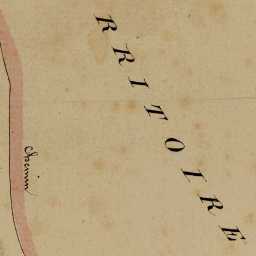 RRITOIRE
chemin